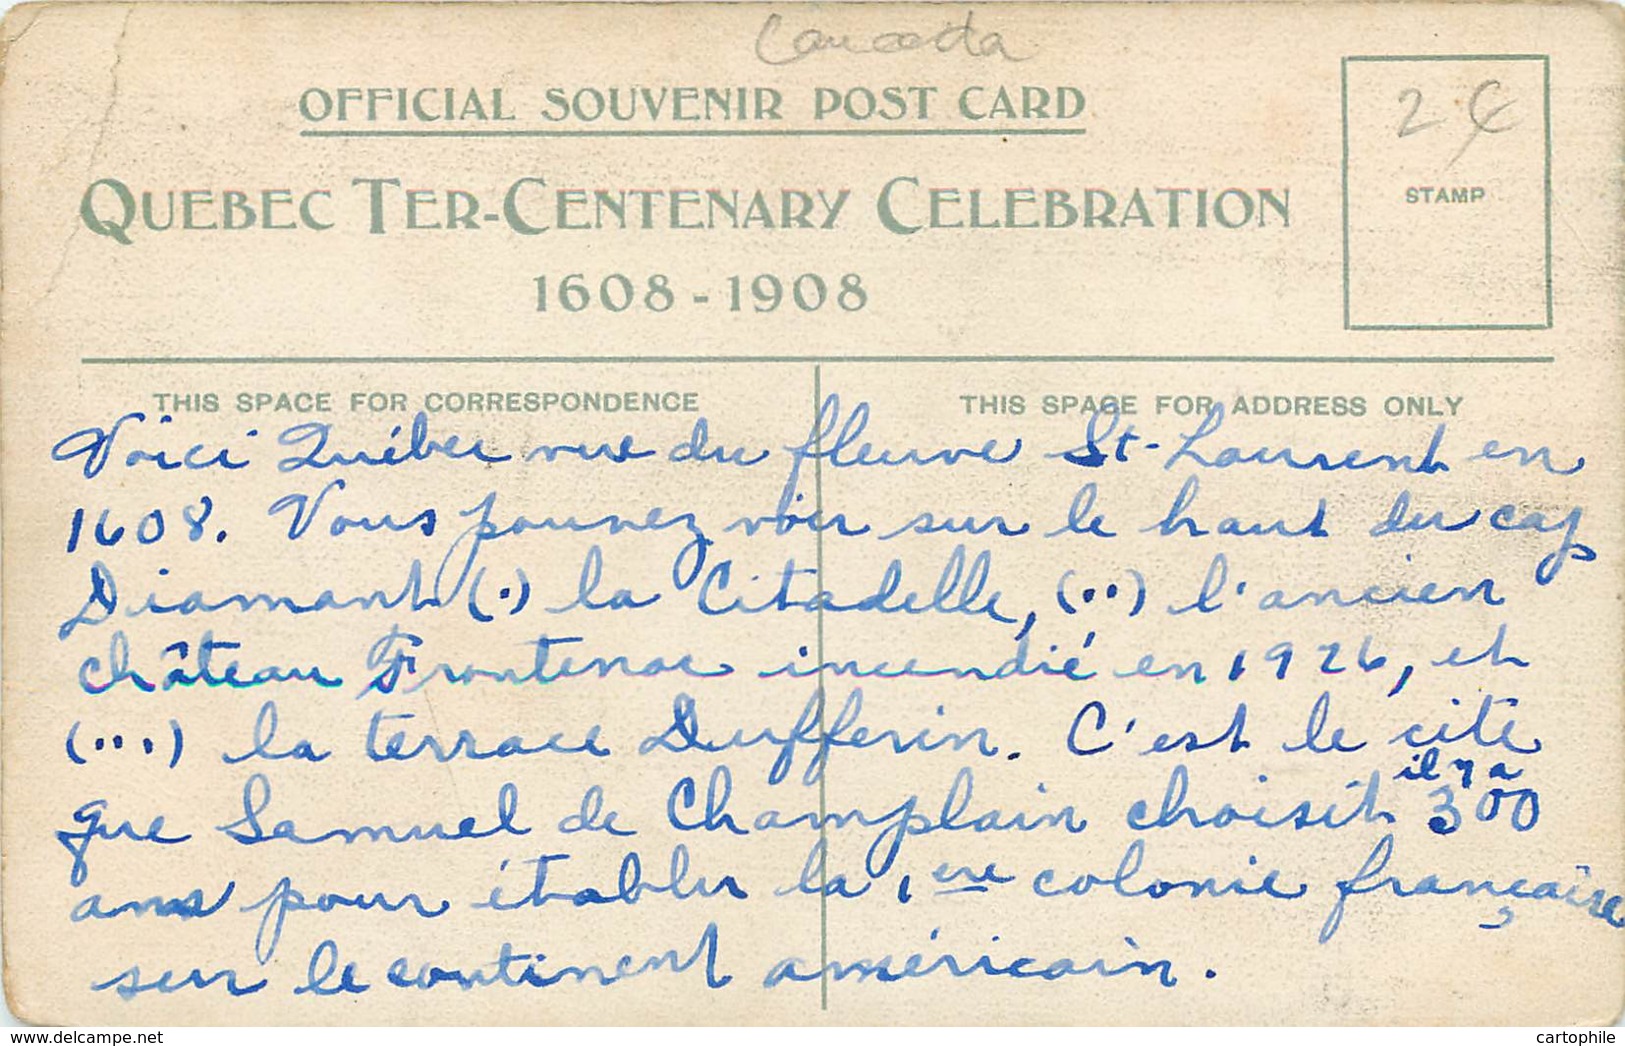 Canada
OFFICIAL SOUVENIR POST CARD
2 ¢
QUEBEC TER-CENTENARY CELEBRATION
STAMP
1608 - 1908
THIS SPACE FOR CORRESPONDENCE
THIS SPACE FOR ADDRESS ONLY
Voici Québec vue du fleuve St-Laurent en
1608. Vous pouvez voir sur le haut du cap
Diamant (.) la Citadelle, (..) l'ancien
château Frontenac incendié en 1926, et
(...) la terrace Dufferin. C'est le cite
il y a
que Samuel de Champlain choisit 300
ans pour établir la 1ere colonie française
sur le continent américain.
cartophile